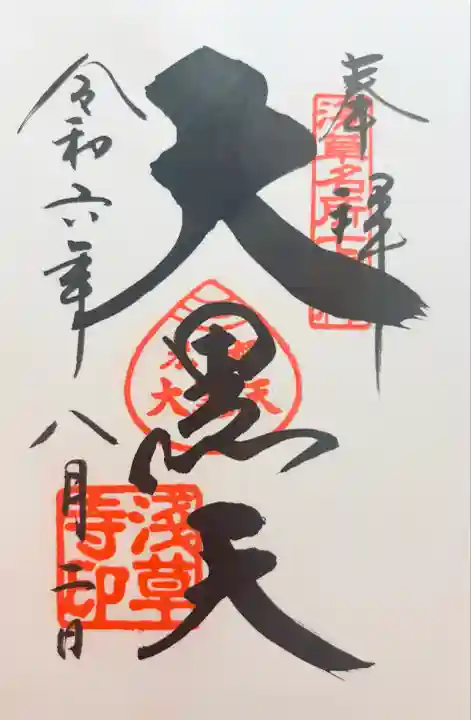 奉拝
浅草名所七福神
大黒天
淺草寺印
令和六年八月二日